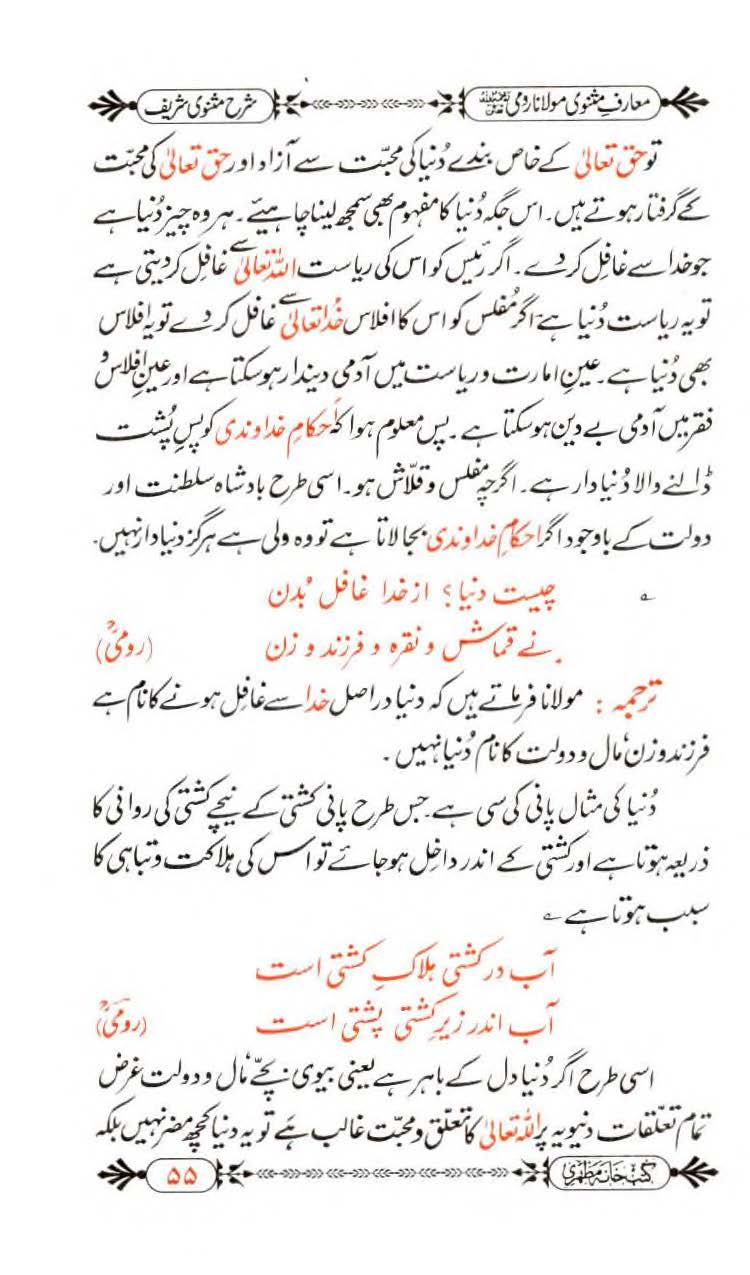 معارفِ مثنوی مولانا رومیؒ
شرح مثنوی شریف
تو حق تعالیٰ کے خاص بندے دُنیا کی محبّت سے آزاد اور حق تعالیٰ کی محبّت
کے گرفتار ہوتے ہیں۔ اس جگہ دُنیا کا مفہوم بھی سمجھ لینا چاہیئے۔ ہر وہ چیز دُنیا ہے
جو خدا سے غافِل کر دے۔ اگر رئیس کو اس کی ریاست اللہ تعالیٰ سے غافِل کر دیتی ہے
تو یہ ریاست دُنیا ہے، اگر مُفلس کو اس کا افلاس خُدا تعالیٰ سے غافل کر دے تو یہ افلاس
بھی دُنیا ہے۔ عینِ امارت و ریاست میں آدمی دیندار ہو سکتا ہے اور عینِ افلاس و
فقر میں آدمی بے دین ہو سکتا ہے۔ پس معلوم ہوا کہ احکامِ خداوندی کو پسِ پُشت
ڈالنے والا دُنیا دار ہے۔ اگرچہ مفلس و قلّاش ہو۔ اسی طرح بادشاہ سلطنت اور
دولت کے باوجود اگر احکامِ خداوندی بجا لاتا ہے تو وہ ولی ہے ہرگز دنیا دار نہیں۔
؎ چیست دنیا؟ از خدا غافل بُدن
نے قماش و نقرہ و فرزند و زن (رومیؒ)
ترجمہ : مولانا فرماتے ہیں کہ دنیا دراصل خدا سے غافِل ہونے کا نام ہے
فرزند و زن، مال و دولت کا نام دُنیا نہیں۔
دُنیا کی مثال پانی کی سی ہے۔ جس طرح پانی کشتی کے نیچے کشتی کی روانی کا
ذریعہ ہوتا ہے اور کشتی کے اندر داخِل ہو جائے تو اس کی ہلاکت و تباہی کا
سبب ہوتا ہے ؎
آب در کشتی ہلاکِ کشتی است
آب اندر زیرِ کشتی پشتی است (رومیؒ)
اسی طرح اگر دُنیا دل کے باہر ہے یعنی بیوی بچّے، مال و دولت غرض
تمام تعلّقات دنیویہ پر اللہ تعالیٰ کا تعلّق و محبّت غالب ہے تو یہ دنیا کچھ مضر نہیں بلکہ
کتب خانہ مظہری
۵۵